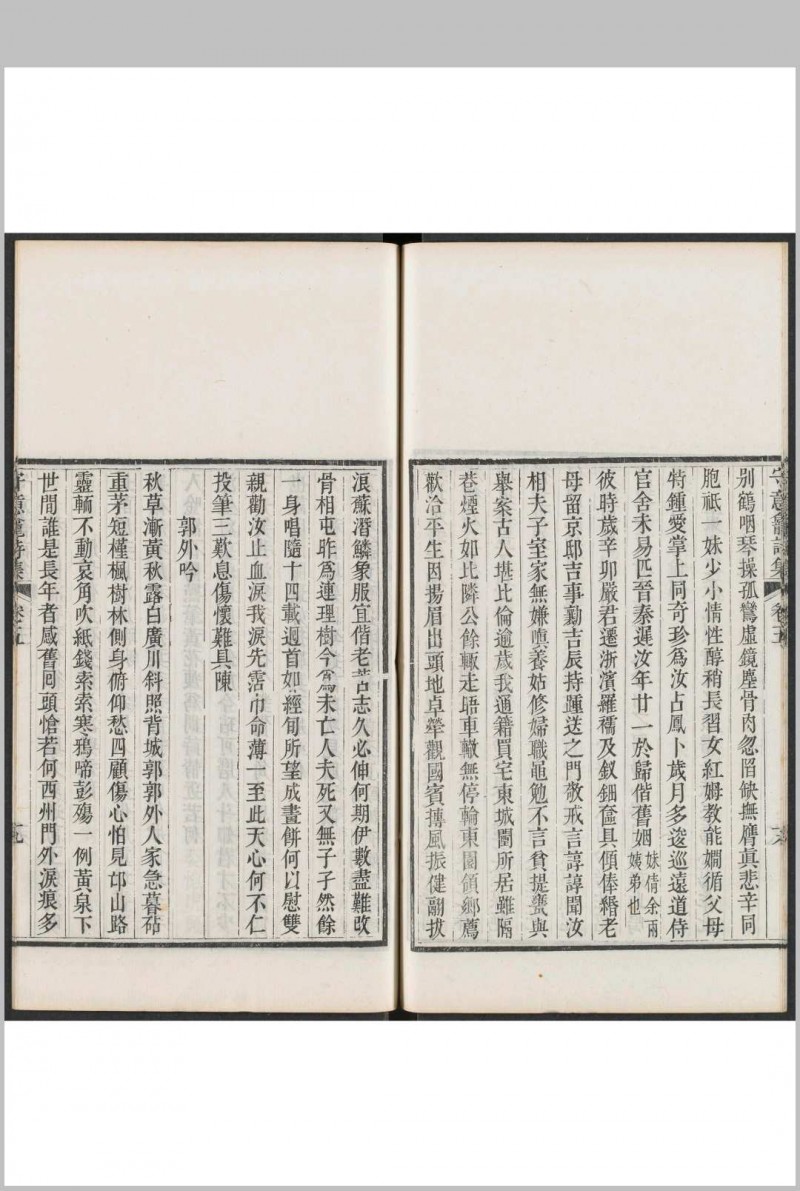 守意龕詩集 卷五
別鶴咽琴操孤鸞虛鏡塵骨肉忽陷缺撫膺眞悲辛同
胞祇一妹少小情性醇稍長習女紅姆教能嫺循父母
特鍾愛掌上同奇珍為汝占鳳卜歲月多逡巡遠道侍
官舍未易匹晉秦遲汝年廿一於歸偕舊姻妹倩余兩姨弟也
彼時歲辛卯嚴君遷浙濱羅襦及釵鈿奩具傾俸緡老
母留京邸吉事勤吉辰持踵送之門敬戒言諄諄聞汝
相夫子室家無嫌嗔養姑修婦職黽勉不言貧提甕與
舉案古人堪比倫逾歲我通籍買宅東城闉所居雖隔
巷煙火如比隣公餘輒走晤車轍無停輪東園領鄉薦
歡洽平生因揚眉出頭地卓犖觀國賓摶風振健翮拔
浪蘇潛鱗象服宜偕老苦志久必伸何期伊數盡難改
骨相屯昨為連理樹今為未亡人夫死又無子孑然餘
一身唱隨十四載迴首如經旬所望成畫餅何以慰雙
親勸汝止血淚我淚先霑巾命薄一至此天心何不仁
投筆三歎息傷懷難具陳
郭外吟
秋草漸黃秋露白廣川斜照背城郭郭外人家急暮砧
重茅短槿楓樹林側身俯仰愁四顧傷心怕見邙山路
靈輀不動哀角吹紙錢索索寒鴉啼彭殤一例黃泉下
世間誰是長年者感舊回頭愴若何西州門外淚痕多
守意龕詩集 卷五